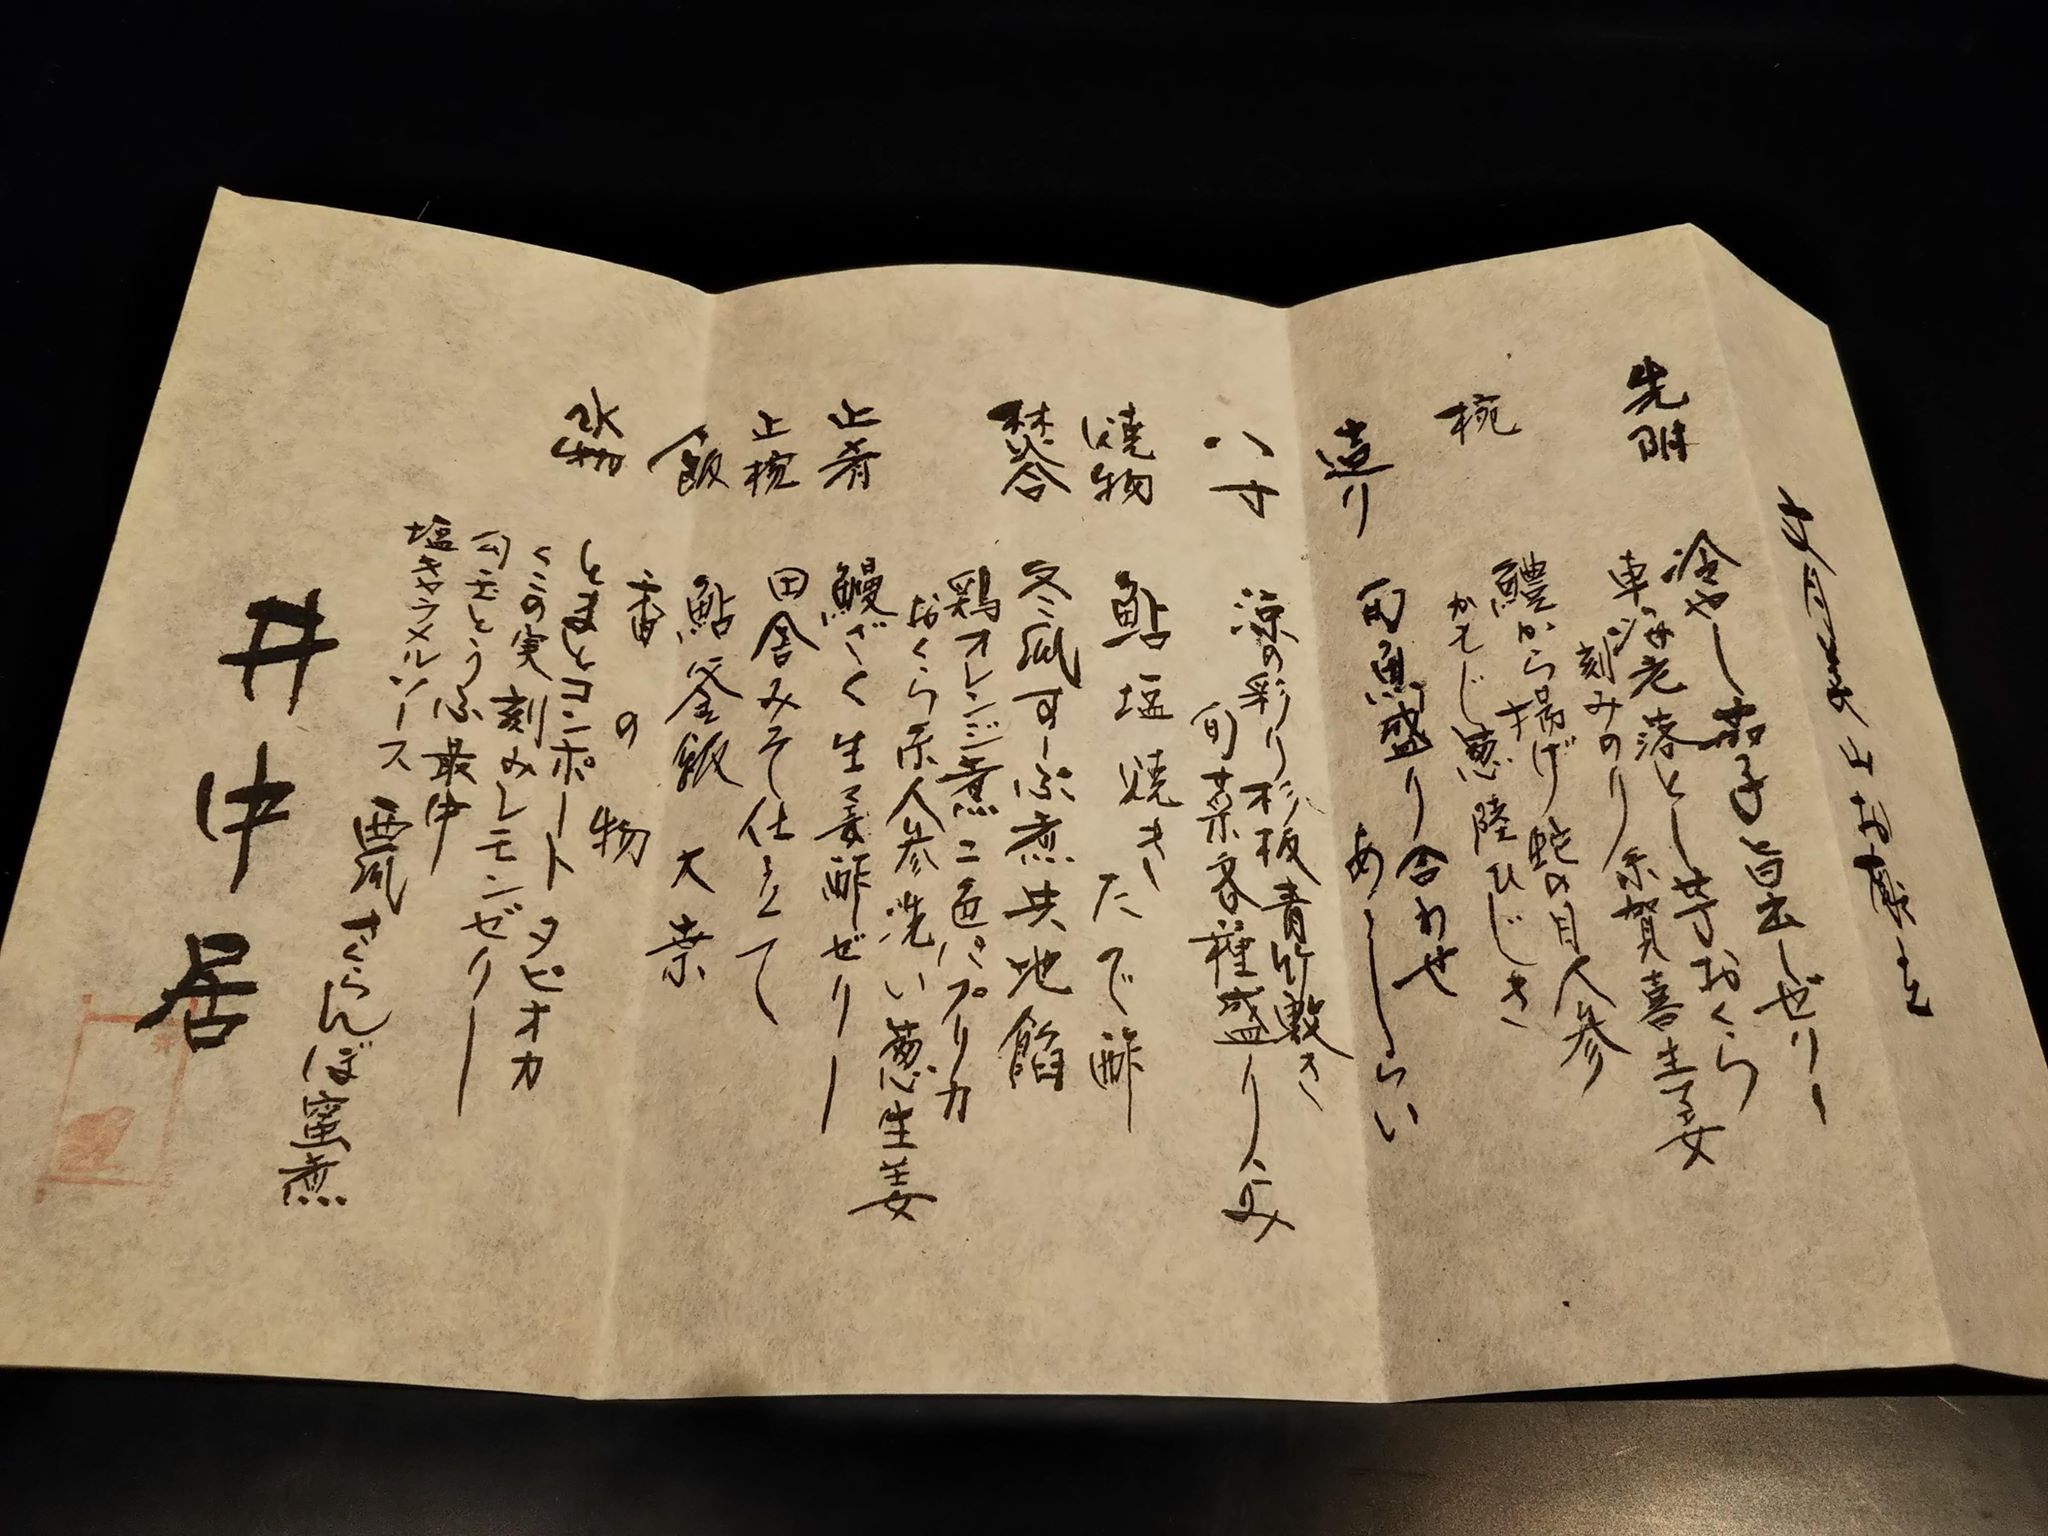 お献立
先附
冷やし茄子旨出しゼリー
車海老落とし芋おくら
刻みのり糸賀喜生姜
椀
鱧から揚げ蛇の目人参
かもじ葱陸ひじき
造り
旬魚盛り合わせ
あしらい
八寸
涼の彩り杉板青竹敷き
旬菜各種盛り込み
焼物
鮎塩焼きたで酢
焚合
冬瓜すーぷ煮共地餡
鶏オレンジ煮二色パプリカ
おくら糸人参洗い葱生姜
止肴
鰻ざく生姜酢ゼリー
止椀
田舎みそ仕立て
飯
鮎釜飯 大葉
香の物
水物
とまとコンポートタピオカ
くこの実刻みレモンゼリー
とうふ最中
塩キャラメルソース
さくらんぼ蜜煮
井中居